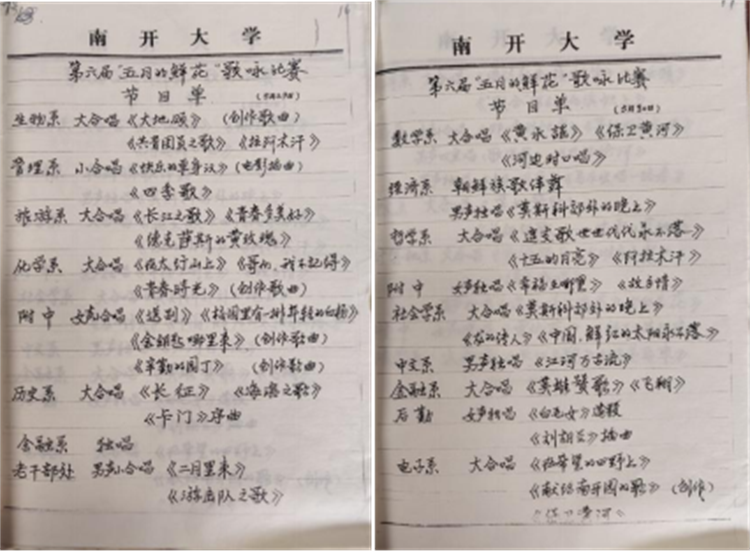 南开大学
第六届"五月的鲜花"歌咏比赛
节目单
生物系 大合唱《大地颂》(创作歌曲)
《共青团员之歌》《拉阿木汗》
管理系 小合唱《快乐的单身汉》(电影插曲)
《四季歌》
旅游系 大合唱《长江之歌》《青春多美好》
《德克萨斯的黄玫瑰》
化学系 大合唱《在太行山上》
《青春时光》(创作歌曲)
附中 女声合唱《送别》《校园里有一排年轻的白杨》
《金钥匙哪里来》(创作歌曲)
《辛勤的园丁》(创作歌曲)
历史系 大合唱《长征》《海港之歌》
《卡门》序曲
金融系 独唱
老干部处 男声小合唱《二月里来》
《游击队之歌》
17
南开大学
第六届"五月的鲜花"歌咏比赛
节目单
数学系 大合唱《黄水谣》《保卫黄河》
《河边对口唱》
经济系 朝鲜族歌伴舞
男声独唱《莫斯科郊外的晚上》
哲学系 大合唱《这支歌世世代代永不落》
《十五的月亮》《阿拉木汗》
附中 女声独唱《幸福在哪里》《故乡情》
社会学系 大合唱《莫斯科郊外的晚上》
《龙的传人》《中国,鲜红的太阳永不落》
中文系 男声独唱《江河万古流》
金融系 大合唱《英雄赞歌》《飞翔》
后勤 女声独唱《白毛女》选段
《刘胡兰》插曲
电子系 大合唱《在希望的田野上》
《献给南开园的歌》(创作)